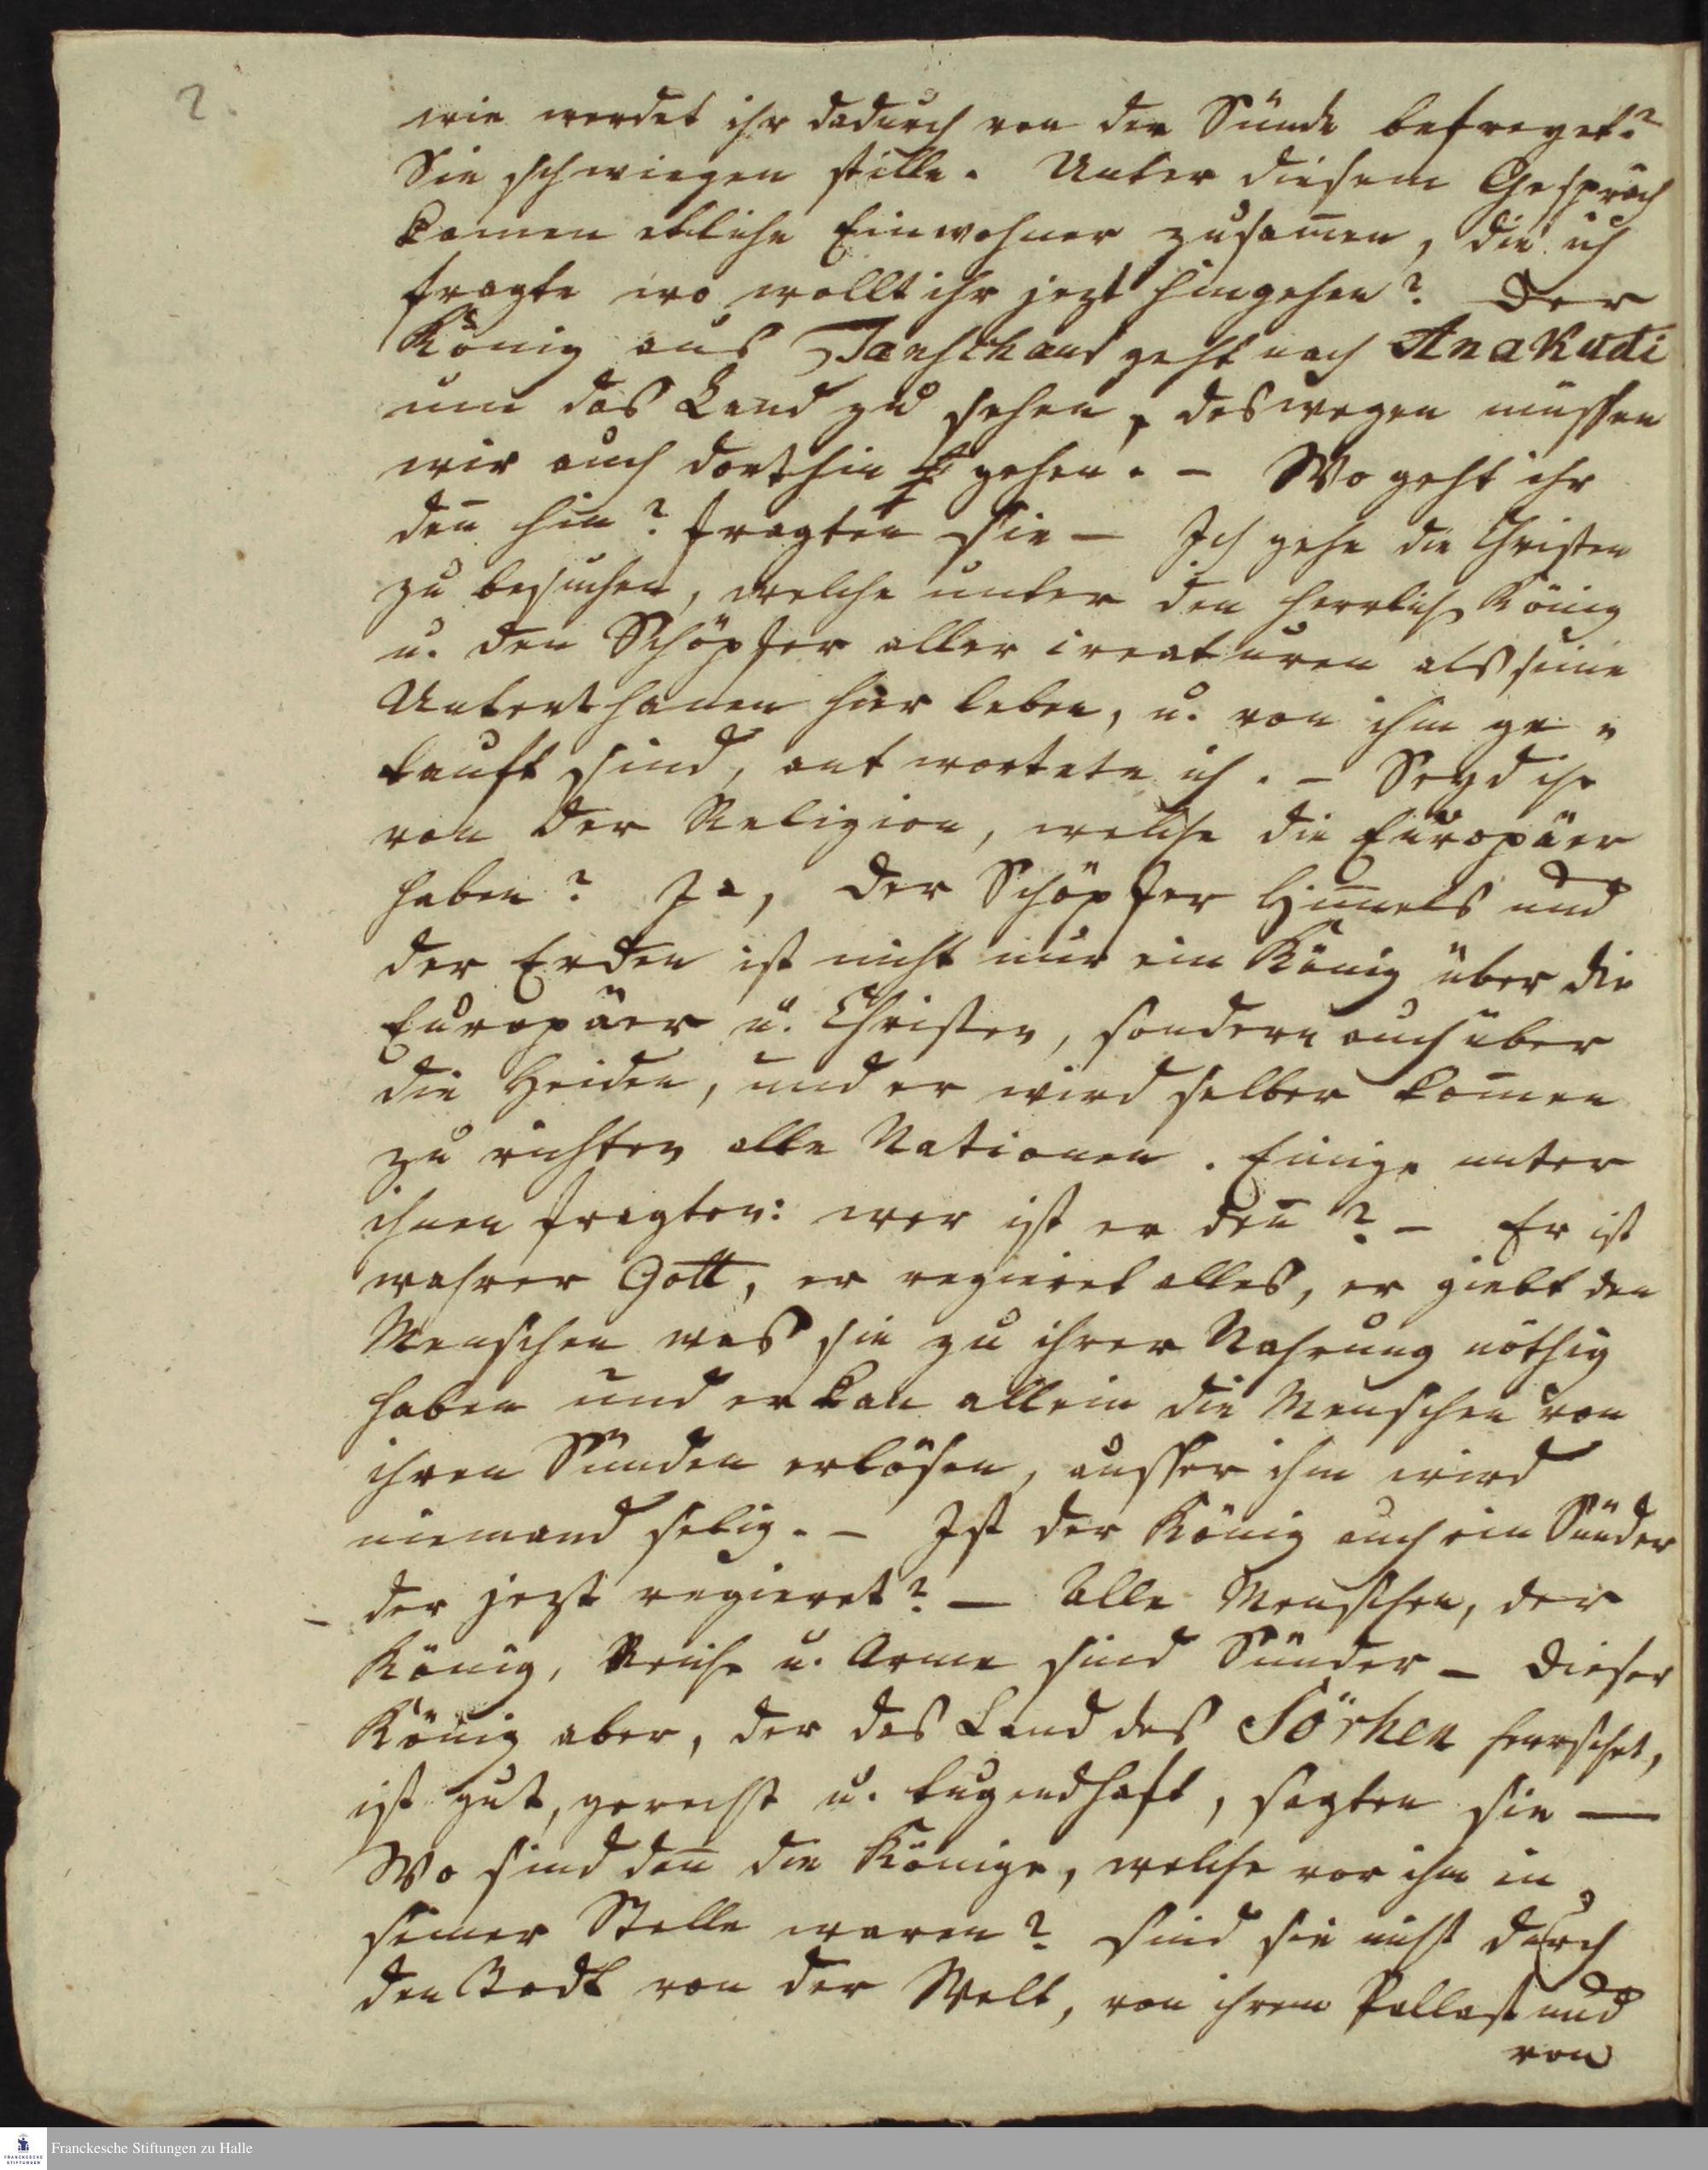 2.
wie werdet ihr dadurch von der Sünde befreyet?
Sie schwiegen stille. Unter diesem Gespräch
kamen etliche Einwohner zusam̅en, die ich
fragte wo wollt ihr jezt hingehen? Der
König aus Tanschaur geht nach Anakudi
um das Land zu sehen, deswegen müssen
wir auch dorthin gehen. – Wo geht ihr
den̅ hin? fragten sie – Ich gehe die Christen
zu besuchen, welche unter den herrlich König
u. den Schöpfer aller creaturen als seine
Unterthanen hier leben, u. von ihm ge„
kauft sind, antwortete ich. – Seyd ihr
von der Religion, welche die Europäer
haben? Ja, der Schöpfer Him̅els und
der Erden ist nicht nur ein König über die
Europäer u. Christen, sondern auch über
die Heiden, und er wird selber kom̅en
zu richten alle Nationen. Einige unter
ihnen fragten: wer ist er den̅? – Er ist
wahrer Gott, er regieret alles, er giebt den
Menschen was sie zu ihrer Nahrung nöthig
haben und er kan allein die Menschen von
ihren Sünden erlösen, ausser ihm wird
niemand selig. – Ist der König auch ein Sünder
der jezt regieret? – Alle Menschen, der
König, Reiche u. Arme sind Sünder – Dieser
König aber, der das Land des Sörhen herrschet,
ist gut, gerecht u. tugendhaft, sagten sie –
Wo sind den̅ die Könige, welche vor ihm in
seiner Stelle waren? sind sie nicht durch
den Todt von der Welt, von ihrem Pallast und
von
Franckesche Stiftungen zu Halle
FRANCKESCHE
STIFTUNGEN